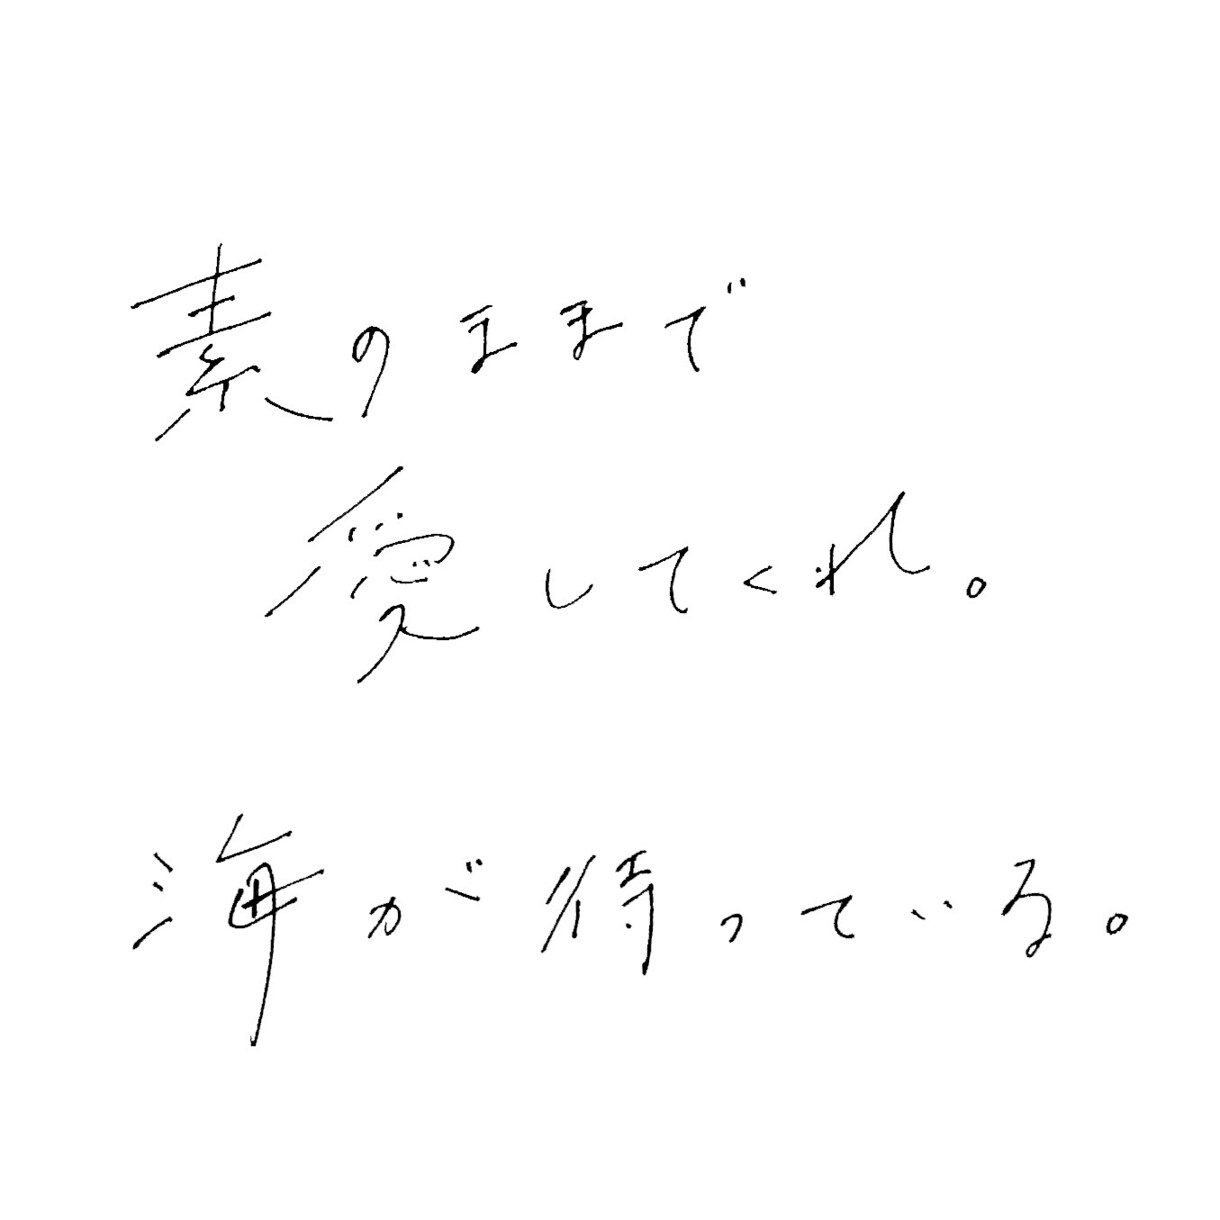 素のままで
愛してくれ。
海が待っている。